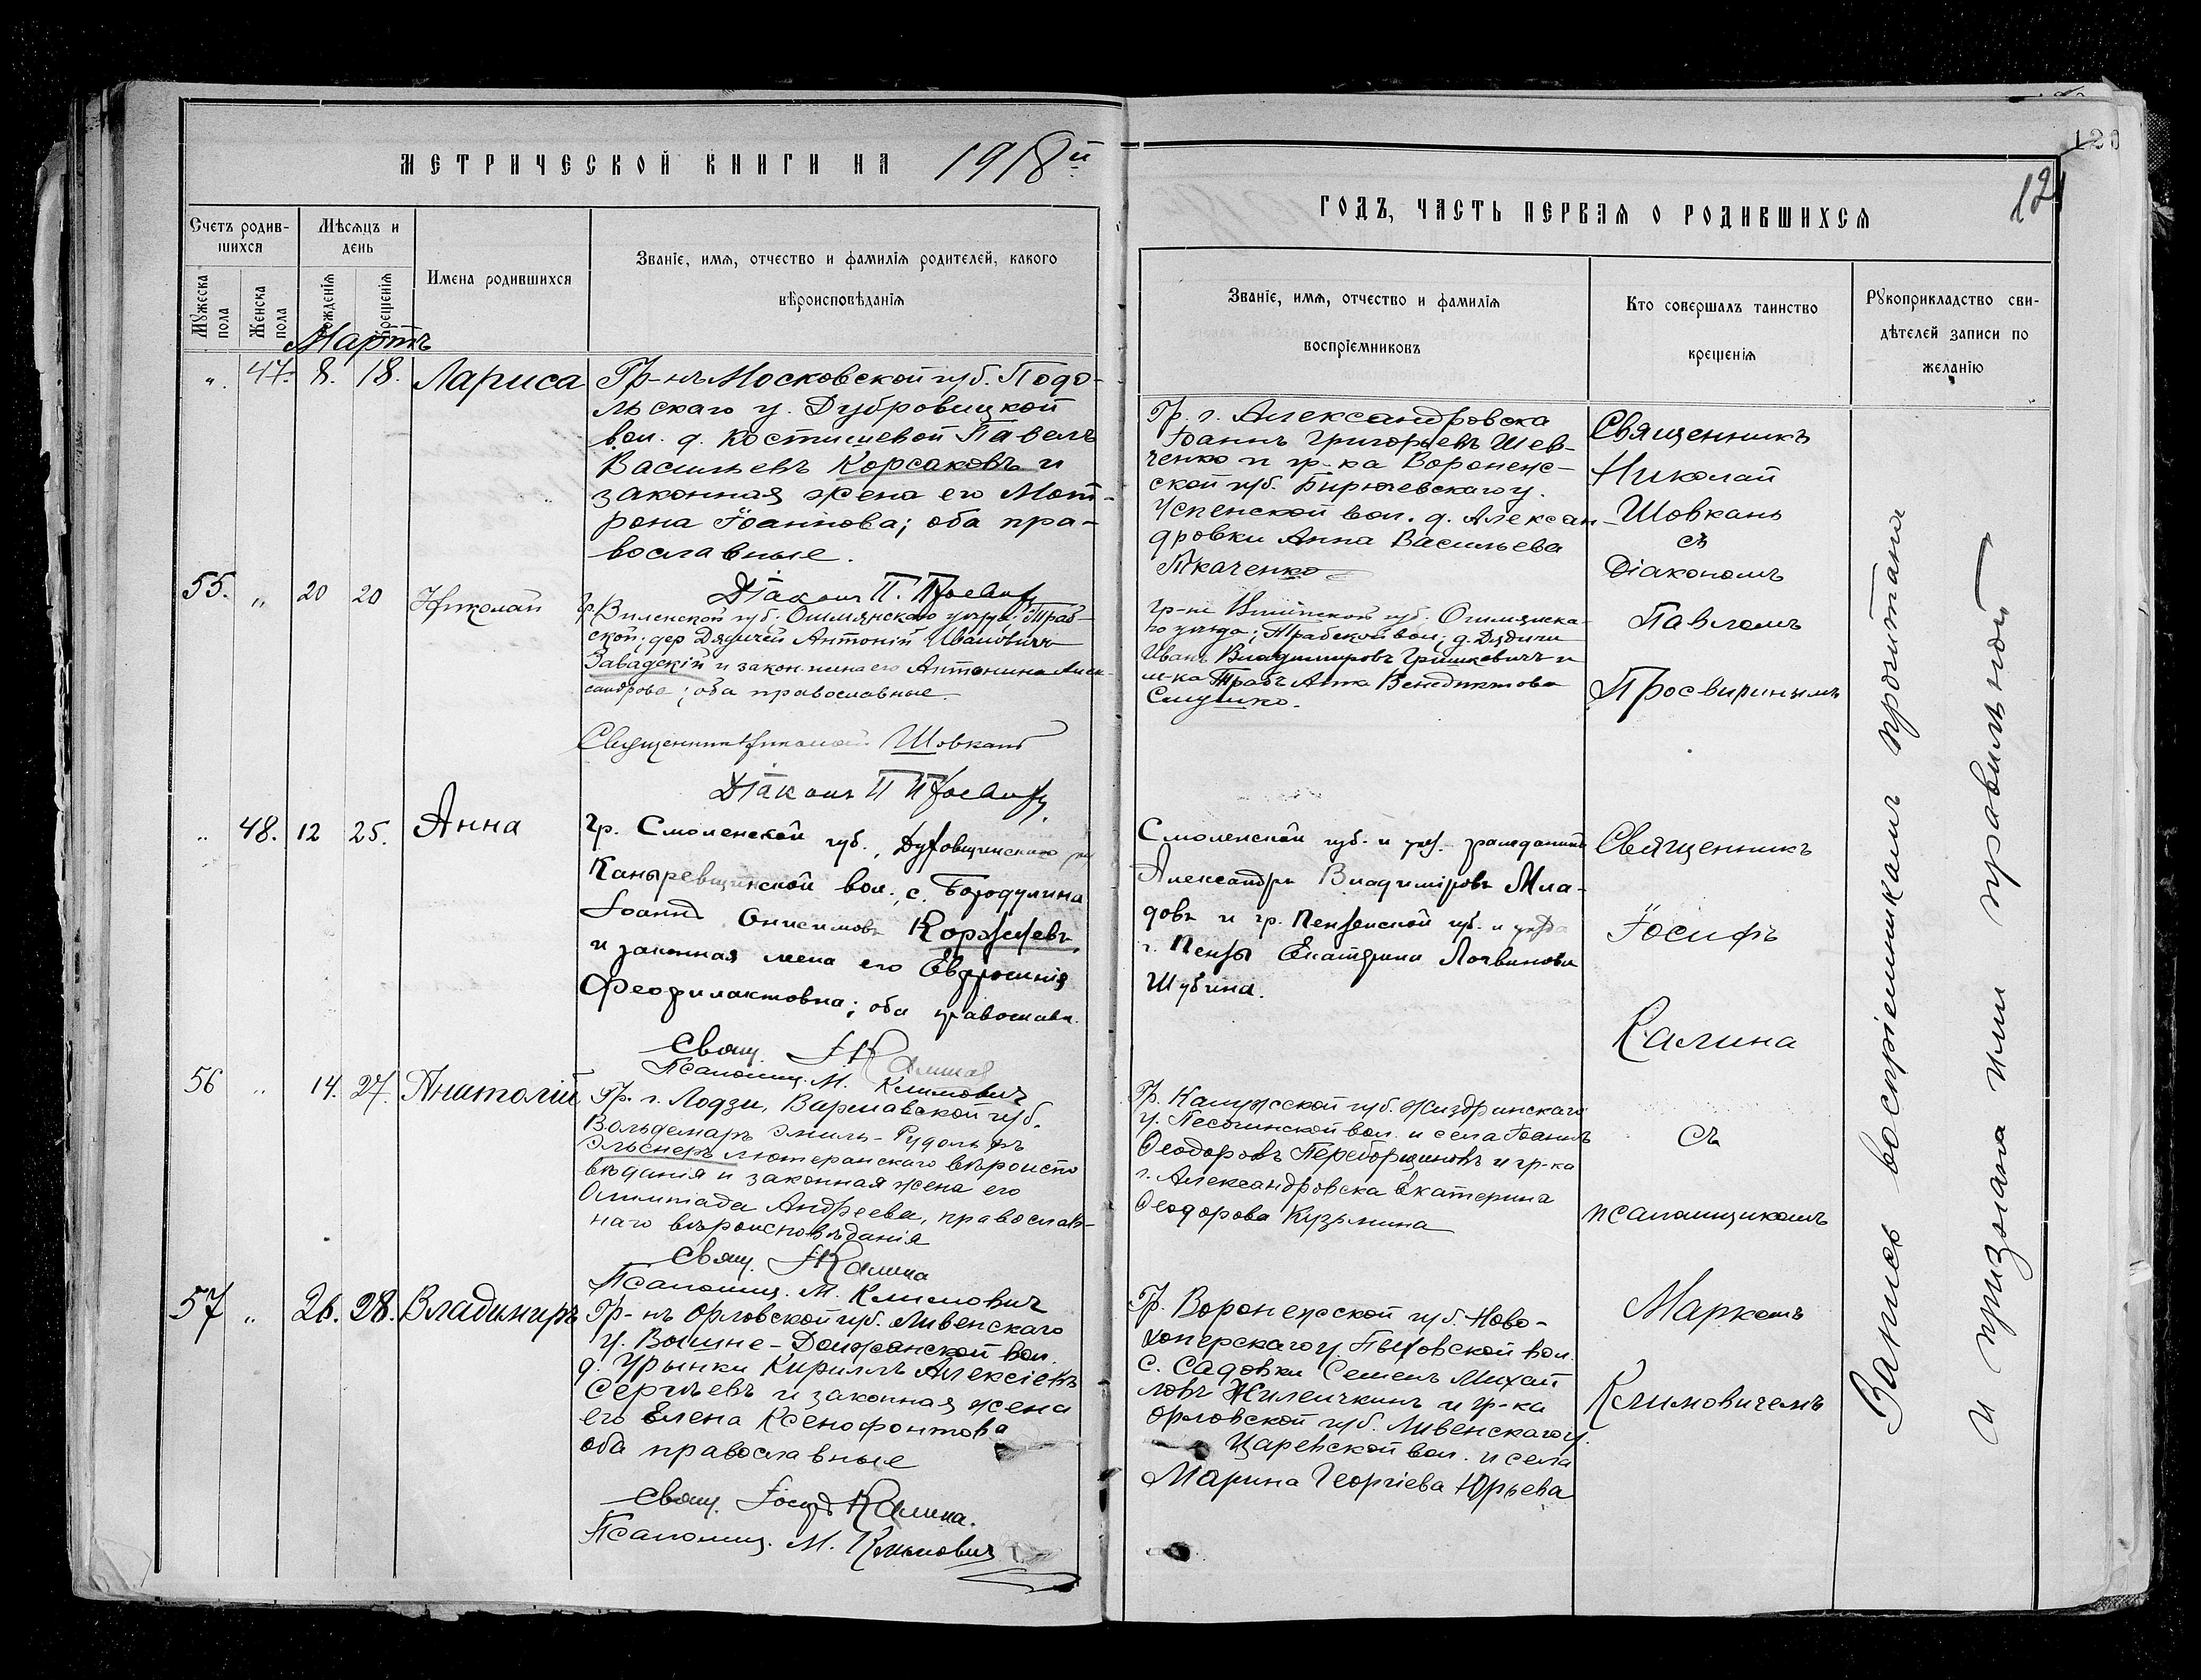 МЕТРИЧЕСКОЙ КНИГИ НА 1918й
Счетъ родив-
шихся
Мѣсяцъ и
день
Имена родившихся
Званіе, имя, отчество и фамилія родителей, какого
вѣроисповѣданія
Мужеска
пола
Женска
пола
рожденія
крещенія
Мартъ
„. 47. 8. 18. Лариса
Гр-нъ Московской губ. Подо-
льскаго у. Дубровицкой
вол. д. Костишевой Павелъ
Васильевъ Корсаковъ и
законная жена его Мот-
рона Іоаннова; оба пра-
вославные.
Діаконъ П.
55. „ 20 20 Николай
Гр. Виленской губ. Ошмянскаго уезда; Траб-
ской; дер Дядичей Антоній Ивановичъ
Завадскій и закон. жена его Антонина Алек-
сандрова; оба православные.
Священникъ Николай Шовкань
Діаконъ П
„ 48. 12 25. Анна
Гр. Смоленской губ., Духовщинскаго у.
Каныревщинской вол., с. Бородулина
Іоаннъ Онисимовъ Коржевъ
и законная жена его Евфросинія
Феофилактовна; оба православн.
Свящ. І Калина
Псаломщ. М. Климовичъ
56 „ 14. 27. Анатолій
Гр. г. Лодзи, Варшавской губ.
Вольдемаръ Эмиль-Рудольфъ
Эльснеръ лютеранскаго вѣроиспо
вѣданія и законная жена его
Олимпіада Андреева, православ-
наго вѣроисповѣданія
Свящ. І Калина
Псаломщ. М. Климовичъ
57 „ 26. 28. Владимиръ
Гр-нъ Орловской губ. Ливенскаго
у. Вышне-Должанской вол.
д. Урынки Кириллъ Алексіевъ
Сергѣевъ и законная жена
его Елена Ксенофонтова
оба православные
Свящ. Іосифъ Калина.
Псаломщ. М. Климовичъ
120
121
ГОДЪ, ЧАСТЬ ПЕРВАЯ О РОДИВШИХСЯ
Званіе, имя, отчество и фамилія
воспріемниковъ
Кто совершалъ таинство
крещенія
Рукоприкладство сви-
дѣтелей записи по
желанію
Гр. г. Александровска
Іоаннъ Григорьевъ Шев-
ченко и гр-ка Воронеж-
ской губ. Бирючевскаго у.
Успенской вол. д. Алексан-
дровки Анна Васильева
Ткаченко
Гр-не Виленской губ. Ошмянска-
го уезда; Трабской вол; д. Дядичи
Иванъ Владимировъ Гришкевичъ и
м-ка Трабъ Анна Венедиктова
Смушко.
Смоленской губ. и уез. гражданинъ
Александръ Владиміровъ Мла-
довъ и гр. Пензенской губ. и уезда
г. Пензы Екатерина Логвинова
Шубина.
Гр. Калужской губ. Жиздринскаго
у. Песочинской вол. и села Іоаннъ
Ѳеодоровъ Переборщиковъ и гр-ка
г. Александровска Екатерина
Ѳеодорова Кузьмина
Гр. Воронежской губ. Ново-
хоперскаго у. Пыховской вол.
с. Садовки Семенъ Михай
ловъ Жилечкинъ и гр-ка
Орловской губ. Ливенскаго у.
Царевской вол. и села
Марина Георгіева Юрьева
Священникъ
Николай
Шовкань
съ
Діакономъ
Павломъ
Просвиринымъ
Священникъ
Іосифъ
Калина
съ
псаломщикомъ
Маркомъ
Климовичемъ
Запись воспріемникамъ прочитана
и признана ими правильной